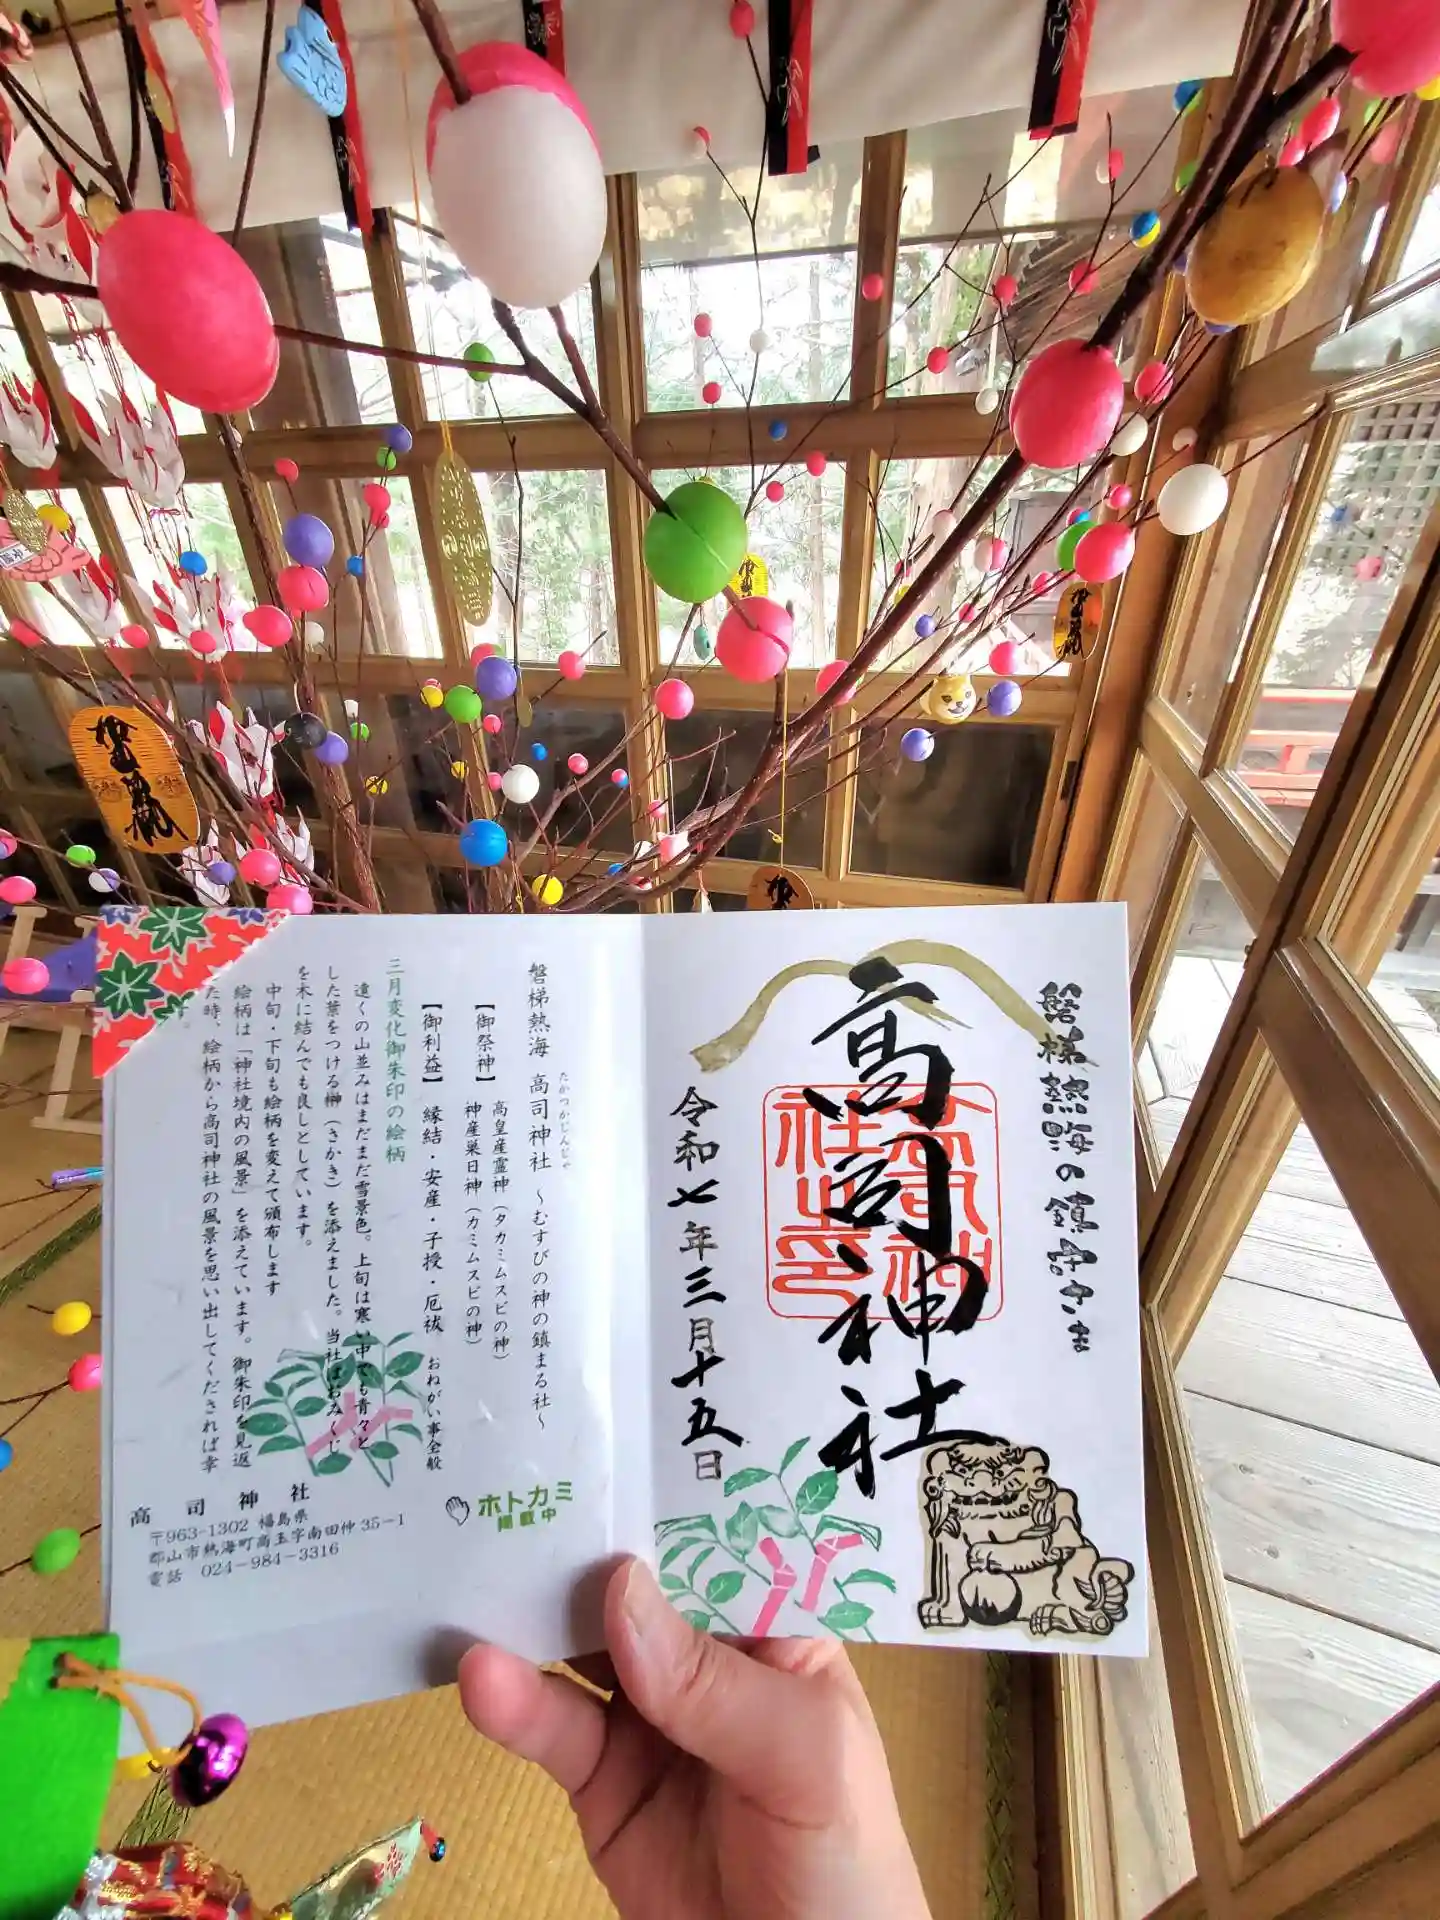 磐梯熱海の鎮守さま
高司神社
高司神社之印
令和七年三月十五日
磐梯熱海 高司神社 ～むすびの神の鎮まる社～
たかつかじんじゃ
【御祭神】 高皇産霊神（タカミムスビの神）
神産巣日神（カミムスビの神）
【御利益】 縁結・安産・子授・厄祓 おねがい事全般
三月変化御朱印の絵柄
遠くの山並みはまだまだ雪景色。上旬は寒い中でも青々と
した葉をつける榊（さかき）を添えました。当社はおみくじ
を木に結んでも良しとしています。
中旬・下旬も絵柄を変えて頒布します
絵柄は「神社境内の風景」を添えています。御朱印を見返
た時、絵柄から高司神社の風景を思い出してくだされば幸
高司神社
〒963-1302 福島県
郡山市熱海町高玉字南田仲35-1
電話 024-984-3316
ホトカミ
掲載中